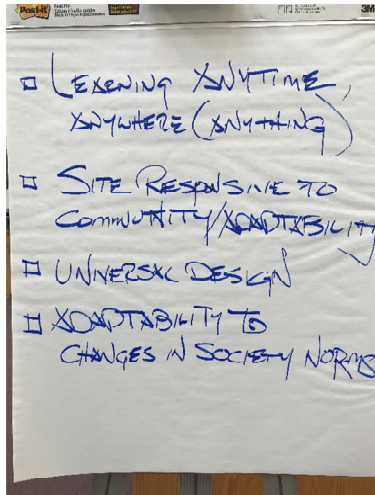 Post-it
3M
LEARNING ANYTIME,
ANYWHERE (ANYTHING)
SITE RESPONSIVE TO
COMMUNITY/ADAPTABILITY
UNIVERSAL DESIGN
ADAPTABILITY TO
CHANGES IN SOCIETY NORMS